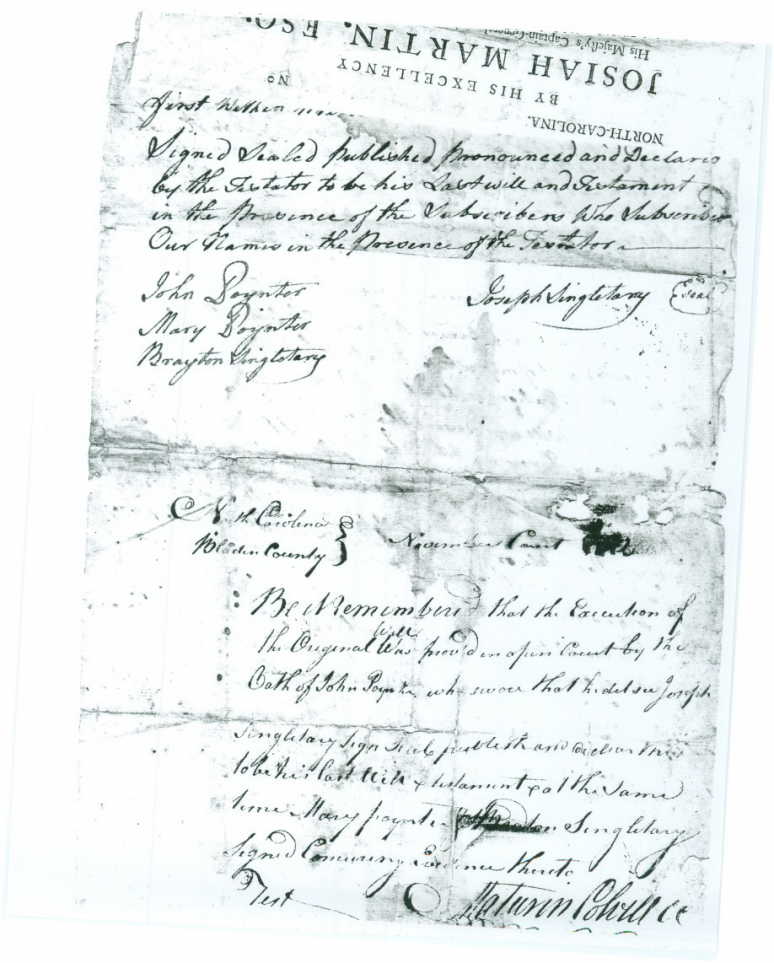 His Majesty's Captain-General
JOSIAH MARTIN, ESQ;
BY HIS EXCELLENCY
No
NORTH-CAROLINA.
first Written
Signed Sealed Published, Pronounced and Declared
by the Testator to be his Last will and Testament
in the Presence of the Subscribers Who Subscribed
Our Names in the Presence of the Testator
John Poynter
Mary Poynter
Brayton Singletary
Joseph Singletary Seal
North Carolina
Bladen County
November Court
Be it Remembered that the Execution of
the Original Will Was proved in open Court by the
Oath of John Poynter who swore that he did see Joseph
Singletary Sign Seal publish and declare this
to be his last Will & testament & at the Same
time Mary poynter Singletary
Signed Concurring Evidence thereto
Test Maturin Colvill CC